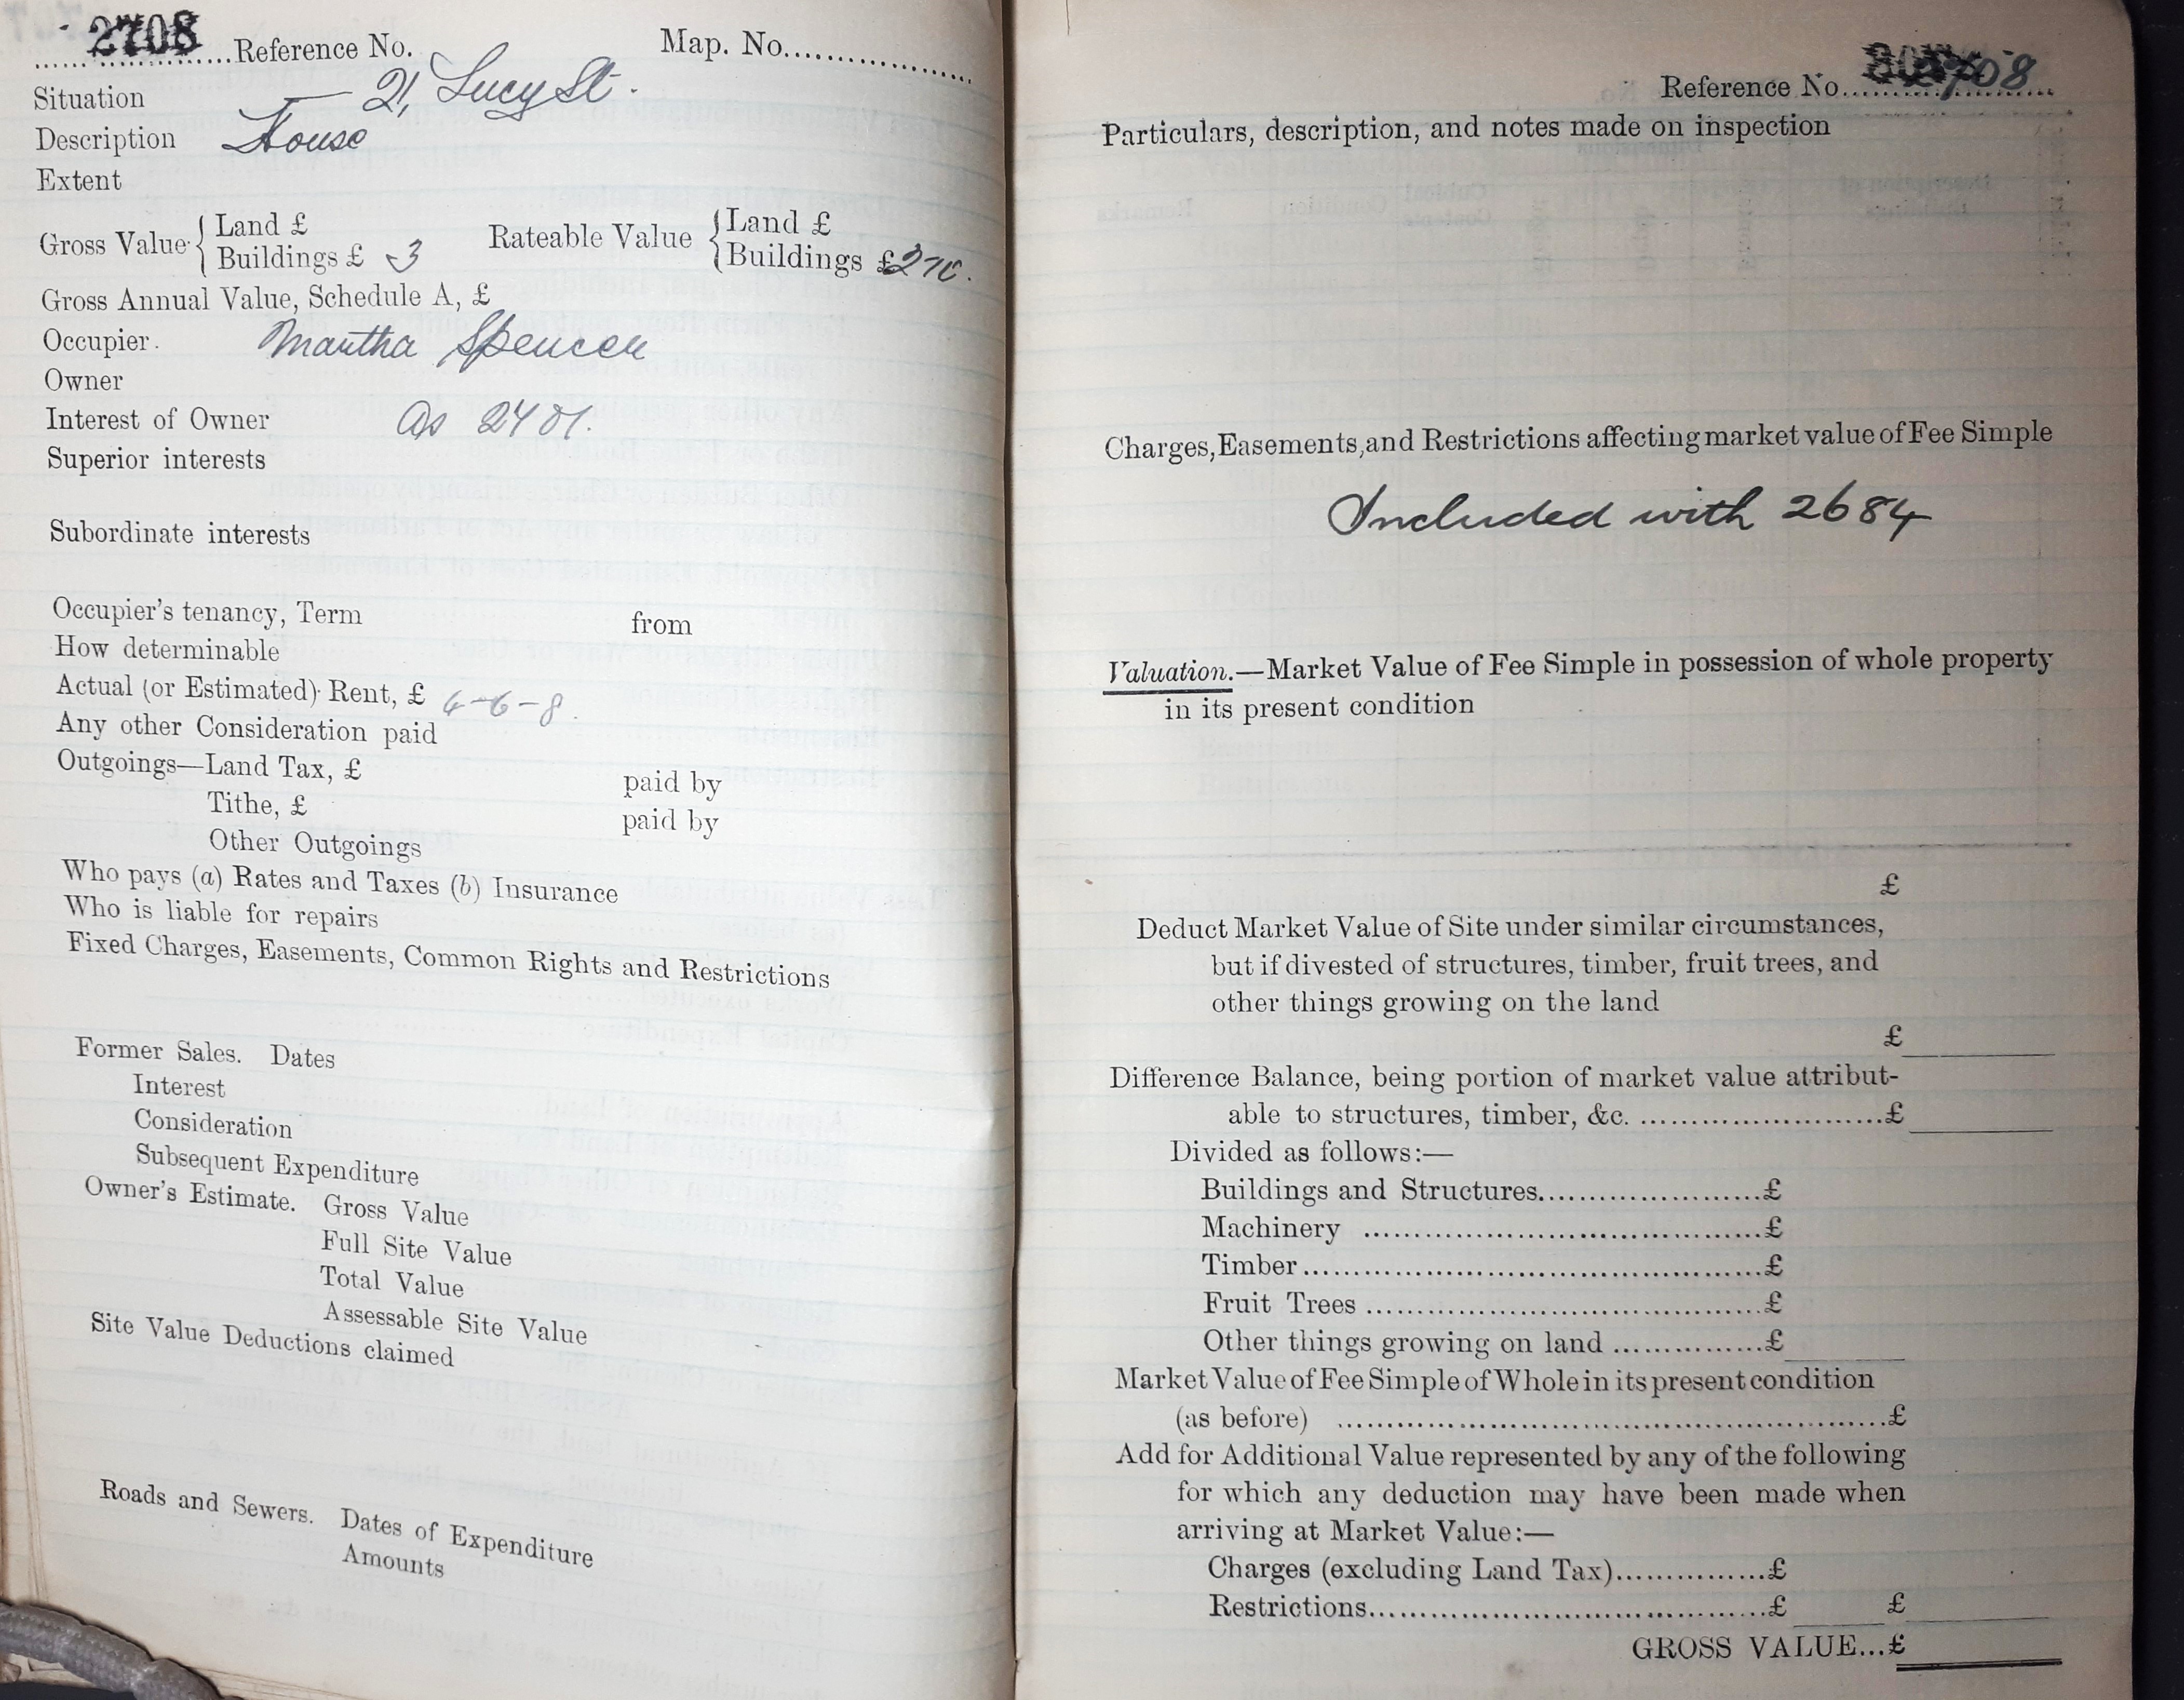 2708 Reference No. Map. No.
Situation 21, Lucy St.
Description House
Extent
Gross Value { Land £
Buildings £ 3
Rateable Value { Land £
Buildings £ 2-10.
Gross Annual Value, Schedule A, £
Occupier. Martha Spencer
Owner
Interest of Owner As 2401.
Superior interests
Subordinate interests
Occupier's tenancy, Term from
How determinable
Actual (or Estimated) Rent, £ 4-6-8.
Any other Consideration paid
Outgoings—Land Tax, £ paid by
Tithe, £ paid by
Other Outgoings
Who pays (a) Rates and Taxes (b) Insurance
Who is liable for repairs
Fixed Charges, Easements, Common Rights and Restrictions
Former Sales. Dates
Interest
Consideration
Subsequent Expenditure
Owner's Estimate. Gross Value
Full Site Value
Total Value
Assessable Site Value
Site Value Deductions claimed
Roads and Sewers. Dates of Expenditure
Amounts
Reference No. 2708
Particulars, description, and notes made on inspection
Charges, Easements, and Restrictions affecting market value of Fee Simple
Included with 2684
Valuation.—Market Value of Fee Simple in possession of whole property
in its present condition
£
Deduct Market Value of Site under similar circumstances,
but if divested of structures, timber, fruit trees, and
other things growing on the land
£
Difference Balance, being portion of market value attribut-
able to structures, timber, &c. £
Divided as follows:—
Buildings and Structures £
Machinery £
Timber £
Fruit Trees £
Other things growing on land £
Market Value of Fee Simple of Whole in its present condition
(as before) £
Add for Additional Value represented by any of the following
for which any deduction may have been made when
arriving at Market Value:—
Charges (excluding Land Tax) £
Restrictions £ £
GROSS VALUE...£